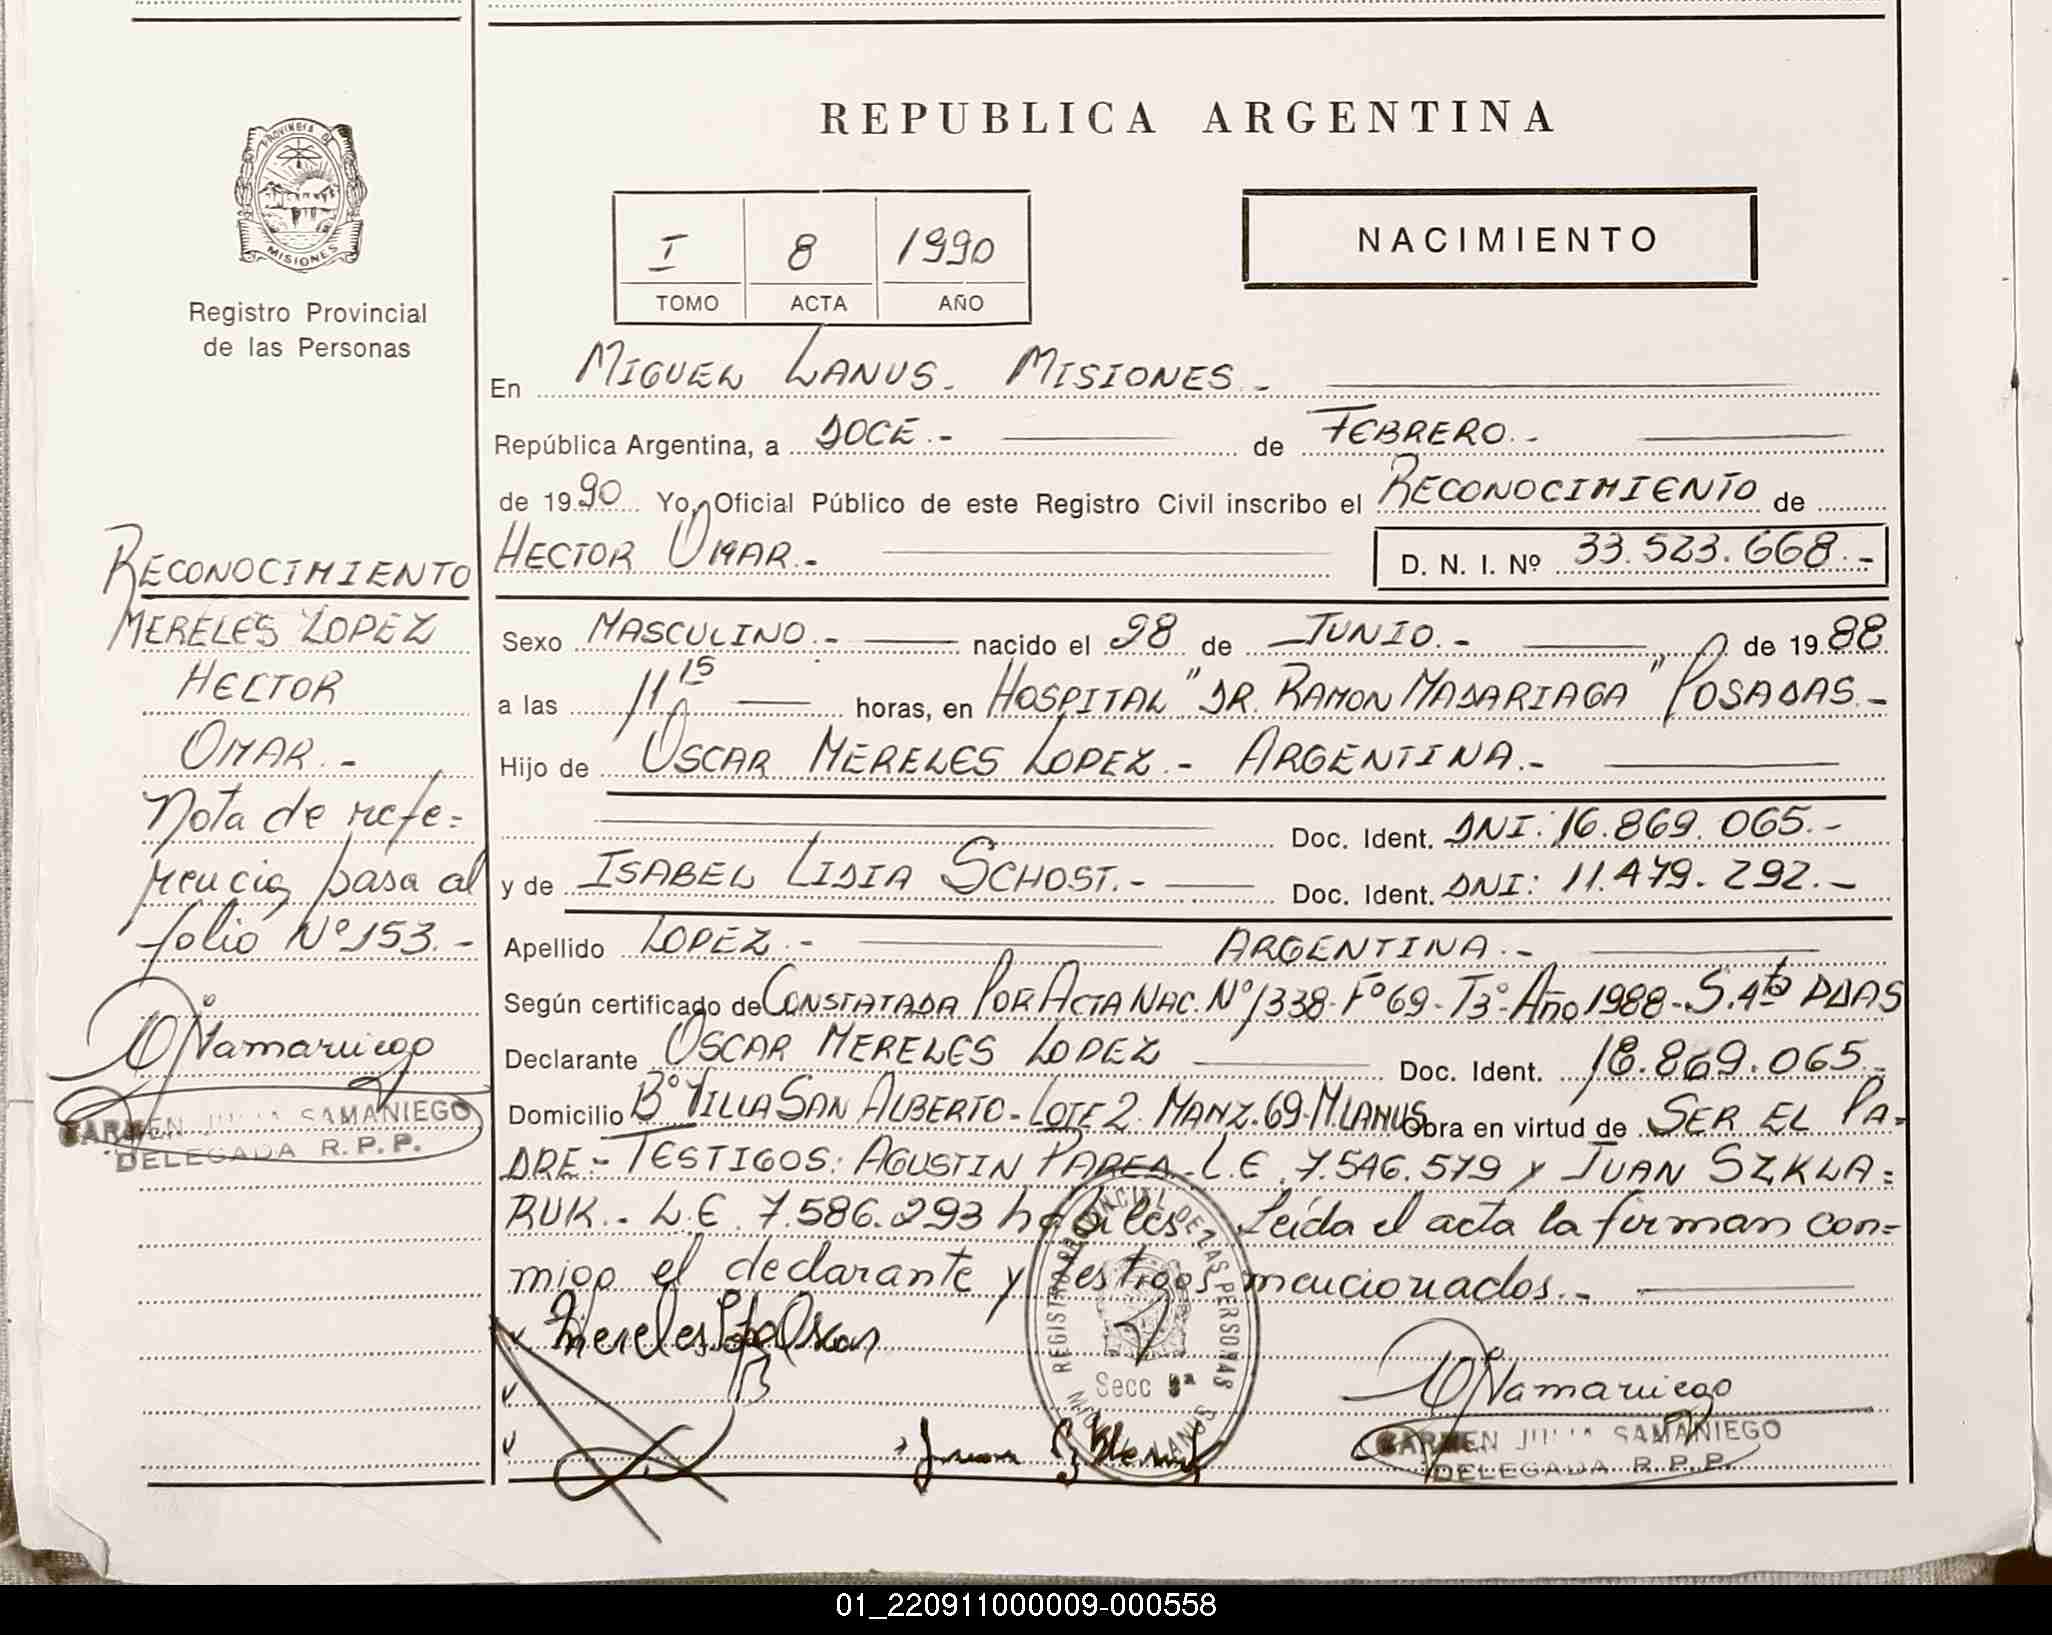 PROVINCIA DE
MISIONES
Registro Provincial
de las Personas
REPUBLICA ARGENTINA
I 8 1990
TOMO ACTA AÑO
NACIMIENTO
En MIGUEL LANUS. MISIONES.-
República Argentina, a DOCE.- de FEBRERO.-
de 1990 Yo, Oficial Público de este Registro Civil inscribo el RECONOCIMIENTO de
HECTOR OMAR.- D. N. I. Nº 33.523.668.-
Sexo MASCULINO.- nacido el 28 de JUNIO.- de 1988
a las 11 15 horas, en HOSPITAL "DR. RAMON MADARIAGA" POSADAS.-
Hijo de OSCAR MERELES LOPEZ.- ARGENTINA.-
Doc. Ident. DNI: 16.869.065.-
y de ISABEL LIDIA SCHOST.- Doc. Ident. DNI: 11.479.292.-
Apellido LOPEZ.- ARGENTINA.-
Según certificado de CONSTATADA POR ACTA NAC. Nº 1338- Fº 69- T3º- Año 1988- S. 4ta PDAS
Declarante OSCAR MERELES LOPEZ Doc. Ident. 16.869.065.-
Domicilio Bº VILLA SAN ALBERTO- LOTE 2. MANZ. 69- M. LANUS Obra en virtud de SER EL PA-
DRE.- TESTIGOS: AGUSTIN L.E. 7.546.579 y JUAN SZKLA=
RUK.- L.E. 7.586.293 hábiles.- Leída el acta la firman con=
migo el declarante y testigos mencionados.-
RECONOCIMIENTO
MERELES LOPEZ
HECTOR
OMAR.-
Nota de refe=
rencia pasa al
folio Nº 153.-
Samaniego
CARMEN JULIA SAMANIEGO
DELEGADA R.P.P.
Mereles Oscar
REGISTRO PROVINCIAL DE LAS PERSONAS
Secc 5ª
MIGUEL LANUS
Juan
Samaniego
CARMEN JULIA SAMANIEGO
DELEGADA R.P.P.
01_220911000009-000558